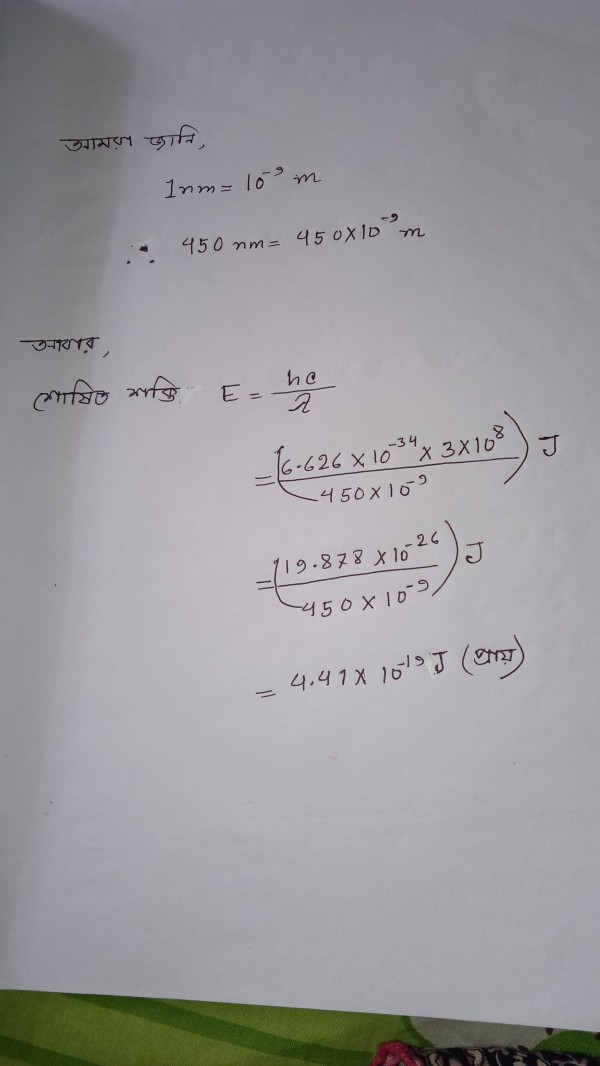 আমরা জানি,
1nm = 10⁻⁹ m
∴ 450 nm = 450×10⁻⁹ m
আবার,
শোষিত শক্তি E = hc/λ
= (6.626 × 10⁻³⁴ × 3×10⁸ / 450×10⁻⁹) J
= (19.878 × 10⁻²⁶ / 450 × 10⁻⁹) J
= 4.41 × 10⁻¹⁹ J (প্রায়)